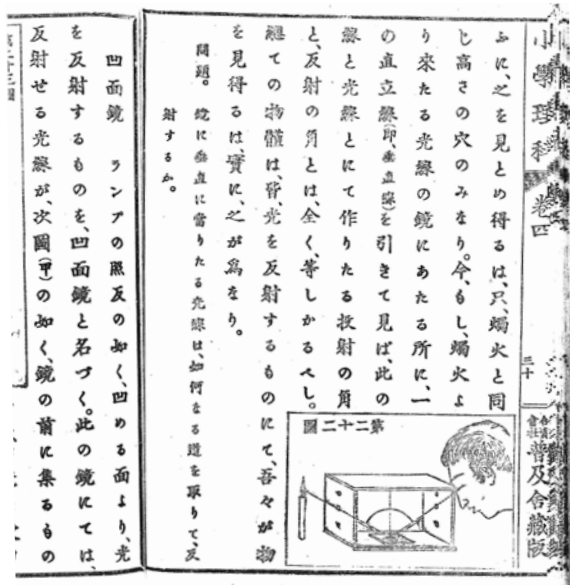 小學理科 卷四 三十
會社 普及舍藏版
ふに、之を見とめ得るは、只、燭火と同
じ高さの穴のみなり。今、もし、燭火よ
り來たる光線の鏡にあたる所に、一
の直立線(即、垂直線)を引きて見ば、此の
線と光線とにて作りたる投射の角
と、反射の角とは、全く、等しかるべし。
第二十二圖
總ての物體は、皆、光を反射するものにて、吾々が物
を見得るは、實に、之が爲なり。
問題。 鏡に垂直に當りたる光線は、如何なる道を取りて、反
射するか。
凹面鏡 ランプの照反の如く、凹める面より、光
を反射するものを、凹面鏡と名づく。此の鏡にては、
反射せる光線が、次圖(甲)の如く、鏡の前に集るもの